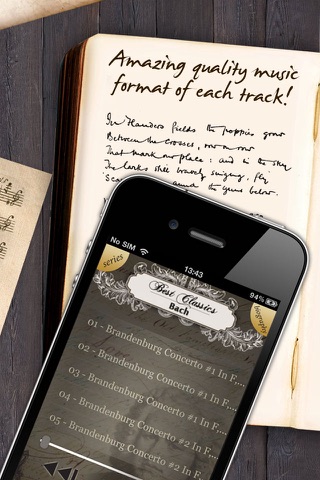 Amazing quality music
format of each track!
In Flanders Fields the poppies grow
Between the crosses, row on row
That mark our place: and in the sky
The larks still bravely singing, fly
Scarce the guns below.
No SIM
13:43
94%
series
biography
Best Classics
Bach
01 - Brandenburg Concerto #1 In F,...
02 - Brandenburg Concerto #1 In F,...
03 - Brandenburg Concerto #1 In F,...
04 - Brandenburg Concerto #1 In F,...
05 - Brandenburg Concerto #2 In F...
Brandenburg Concerto #2 In F